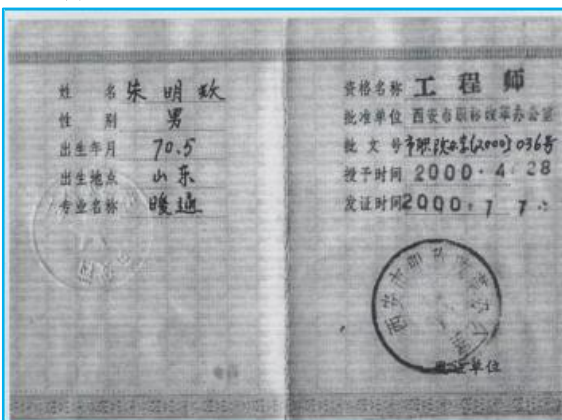 姓 名 朱明欢
性 别 男
出生年月 70.5
出生地点 山东
专业名称 暖通
资格名称 工程师
批准单位 西安市职称改革办公室
批文号 市职改办字(2000)036号
授予时间 2000·4·28
发证时间 2000·7·7
西安市职称改革办公室
发证单位